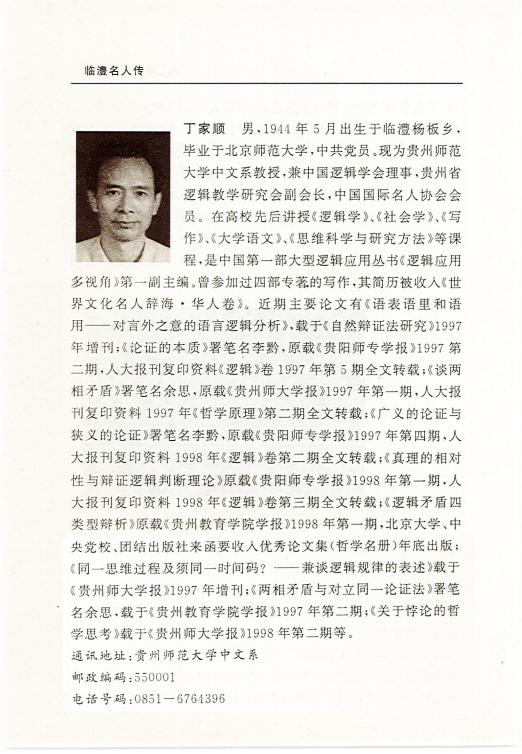 临澧名人传
丁家顺 男,1944年5月出生于临澧杨板乡,
毕业于北京师范大学,中共党员。现为贵州师范
大学中文系教授,兼中国逻辑学会理事,贵州省
逻辑教学研究会副会长,中国国际名人协会会
员。在高校先后讲授《逻辑学》、《社会学》、《写
作》、《大学语文》、《思维科学与研究方法》等课
程,是中国第一部大型逻辑应用丛书《逻辑应用
多视角》第一副主编。曾参加过四部专著的写作,其简历被收入《世
界文化名人辞海·华人卷》。近期主要论文有《语表语里和语
用——对言外之意的语言逻辑分析》,载于《自然辩证法研究》1997
年增刊;《论证的本质》署笔名李黔,原载《贵阳师专学报》1997第
二期,人大报刊复印资料《逻辑》卷1997年第5期全文转载;《谈两
相矛盾》署笔名余思,原载《贵州师大学报》1997年第一期,人大报
刊复印资料1997年《哲学原理》第二期全文转载;《广义的论证与
狭义的论证》署笔名李黔,原载《贵阳师专学报》1997年第四期,人
大报刊复印资料1998年《逻辑》卷第二期全文转载;《真理的相对
性与辩证逻辑判断理论》原载《贵阳师专学报》1998年第一期,人
大报刊复印资料1998年《逻辑》卷第三期全文转载;《逻辑矛盾四
类型辩析》原载《贵州教育学院学报》1998年第一期,北京大学、中
央党校、团结出版社来函要收入优秀论文集(哲学名册)年底出版;
《同一思维过程及须同一时间码?——兼谈逻辑规律的表述》载于
《贵州师大学报》1997年增刊;《两相矛盾与对立同一论证法》署笔
名余思,载于《贵州教育学院学报》1997年第二期;《关于悖论的哲
学思考》载于《贵州师大学报》1998年第二期等。
通讯地址:贵州师范大学中文系
邮政编码:550001
电话号码:0851—6764396